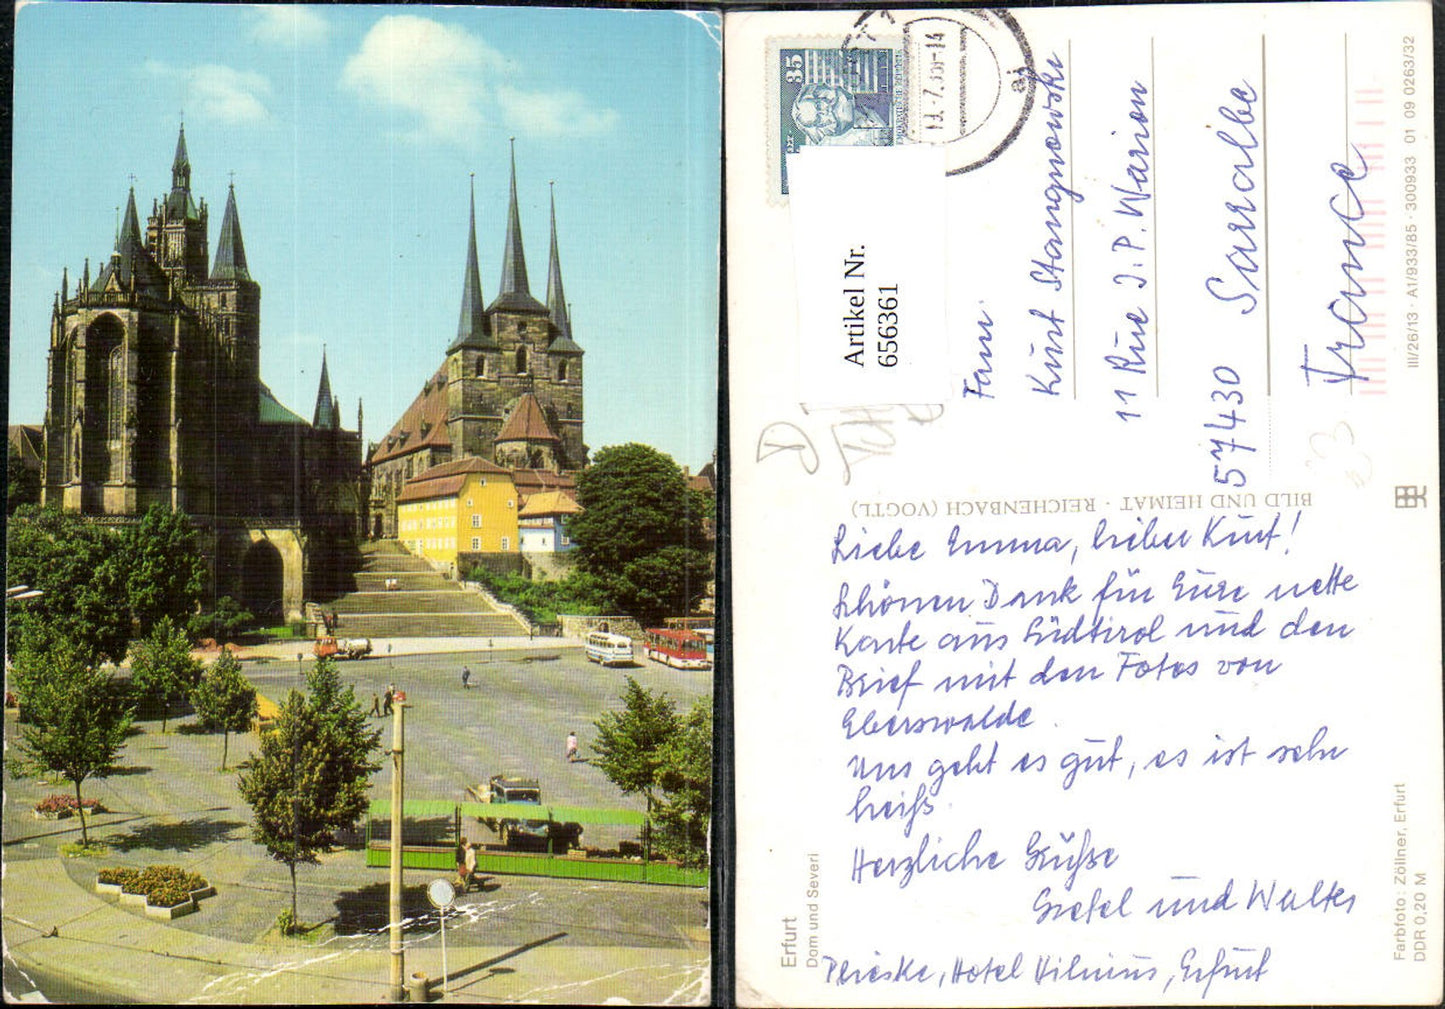 35
DEUTSCHE DEMOKRATISCHE REPUBLIK
Artikel Nr.
656361
Fam.
Kurt Stangnowski
11 Rue J. P. Warion
57430 Sarralbe
France
III/26/13 · A1/933/85 · 300933 01 09 0263/32
BILD UND HEIMAT · REICHENBACH (VOGTL)
Liebe Emma, lieber Kurt!
Schönen Dank für Eure nette
Karte aus Südtirol und den
Brief mit den Fotos von
Eberswalde.
Uns geht es gut, es ist sehr
heiß.
Herzliche Grüße
Gretel und Walter
Plieske, Hotel Vilnius, Erfurt
Erfurt
Dom und Severi
Farbfoto: Zöllner, Erfurt
DDR 0,20 M